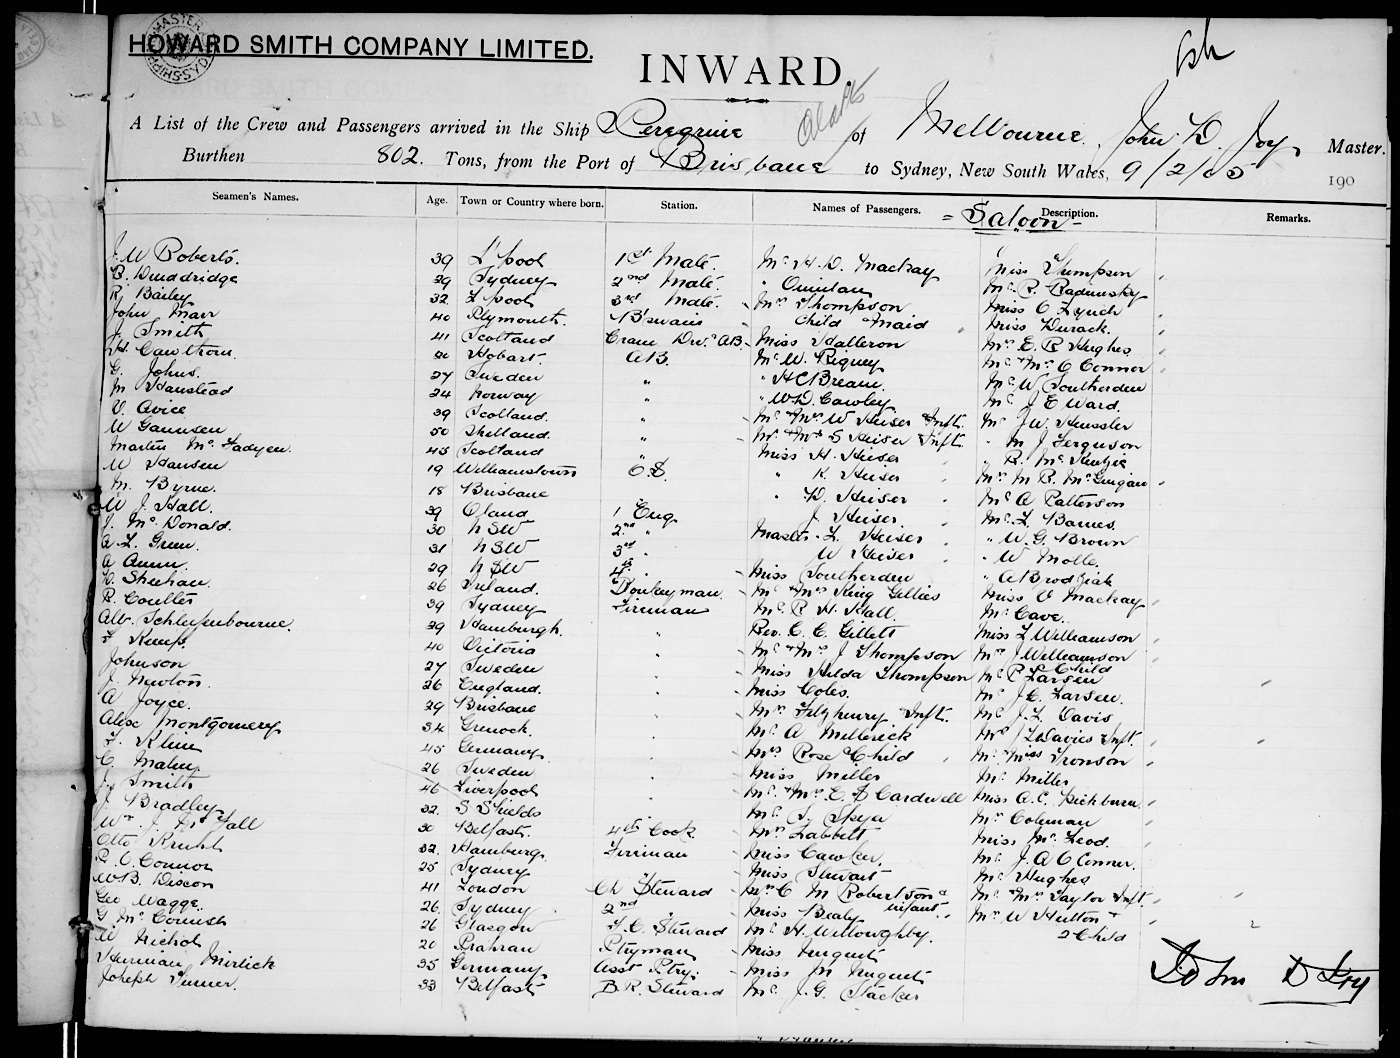 HOWARD SMITH COMPANY LIMITED.
INWARD.
A List of the Crew and Passengers arrived in the Ship Peregrine of Melbourne, John D. Joy, Master.
Burthen 802. Tons, from the Port of Brisbane to Sydney, New South Wales, 9/2/05 190
Seamen's Names. Age. Town or Country where born. Station. Names of Passengers. = Saloon = Description. Remarks.
J. W Roberts. 39 L'pool 1st Mate. Mr H. D. Mackay Miss Thompson
B. Dunddridge 39 Sydney 2nd Mate. " Quinlan Mr R. Radumsky
R. Bailey 32 L'pool 3rd Mate. Mrs Thompson Miss O Lynch
John Marr 40 Plymouth. B'swain Child Maid Miss Durack.
J. Smith 41 Scotland Crane Dvr. AB. Miss Halleron Mrs E. R Hughes
H. Cawthorn. Hobart. AB. Mr W. Rigney Mr & Mrs O Connor
G. Johns. 27 Sweden " " H C Bream. Mr W Southerden
M Hanstead 24 Norway " " W D. Cawley Mr J E Ward.
V. Avice 39 Scotland. " Mr & Mrs W Heiser Inft. Mr J W. Heussler
W Gannsen 50 Shetland. " Mr & Mrs S Heiser Inft. " M J Ferguson
Martin McFadyen. 45 Scotland Miss H. Heiser " R. McKenzie
W Hansen 19 Williamstown O.S. " K. Heiser Mrs M B. McGuigan
M. Byrne. 18 Brisbane " D. Heiser Mr A Patterson
W J. Hall. 39 Oland 1 Eng. J Heiser. Mr L. Barnes.
J. McDonald. 30 NSW 2nd " Master L. Heiser " W. G. Brown
A L. Green. 31 NSW 3rd " W Heiser " W Molle.
A Dunn. 29 NSW 4th " Miss Southerden " A Brodziak
D. Sheehan. 26 Ireland. Donkeyman. Mr & Mrs King Gillies Miss V Mackay
R. Coulter 39 Sydney Fireman Mr R H. Hall. Mr Cave.
Alb. Schleifenbourne. 39 Hamburgh. " Rev. C. C. Gillett Miss L Williamson
F Kemp. 40 Victoria " Mr & Mrs J Thompson Mrs J Williamson
Child
Johnson 27 Sweden " Miss Hilda Thompson Mr P Larsen
J. Newton. 26 England. " Miss Coles. Mr J. C. Larsen.
A Joyce. 29 Brisbane Mrs Fitzhenry Inft. Mr J. L Davis
Alex Montgomery 34 Grenock. " Mr A Millerick Mrs J L Davies Inft.
F. Kline 45 Germany. Mrs Rose & Child Mr & Miss Tronson
C Malm 26 Sweden " Miss Miller Mr Miller
J. Smith 46 Liverpool " Mr & Mrs C. S Cardwell Miss A. C. Hickburn
J Bradley 32. S Shields " Mr T. Skya Mr Coleman
Wm. J. McFall 30 Belfast. 4th Cook Mrs Labbett Miss McLeod.
Otto Kruht 32. Hamburg. Fireman Miss Cawker. Mr J. A O Conner.
P. O'Connor 25 Sydney Miss Stewart Mr Hughes
W B. Discon 41 London Ch Steward Mrs C M Robertson & infant Mr & Mrs Taylor Inft.
Geo Wagge. 26. Sydney. 2nd Miss Bealy Mrs W Hutton &
G McCornish 26 Glasgow F. C. Steward Mr H. Willoughby. 2 Child
W Nichol 20 Prahran Ptryman Miss Nugent
Herman Mirlick 35 Germany Asst Ptry. Miss M Nugent
Joheph Turner. 33 Belfast B. R. Steward Mr J. G. Stacker
John D Joy